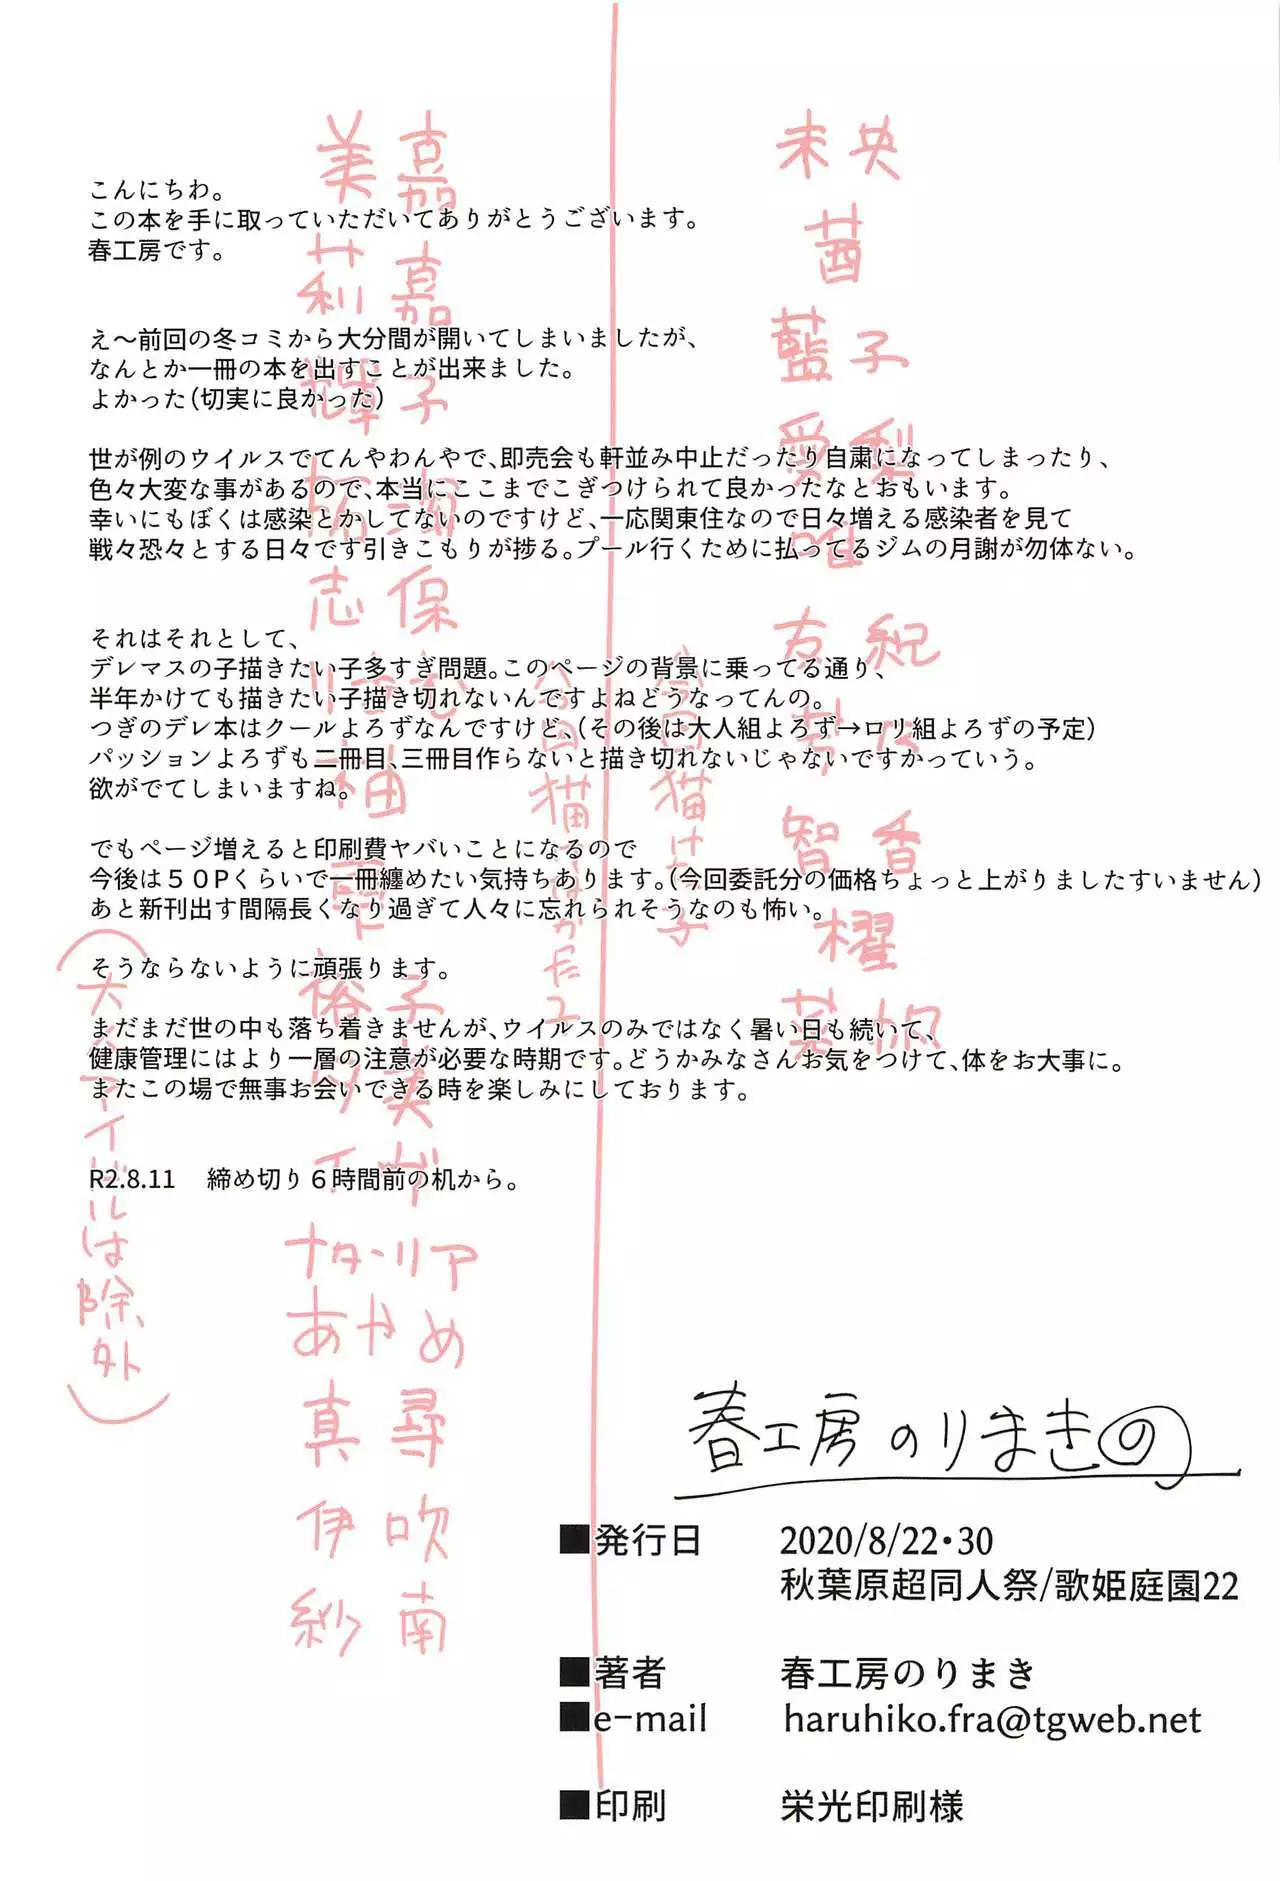 こんにちわ。
この本を手に取っていただいてありがとうございます。
春工房です。
え～前回の冬コミから大分間が開いてしまいましたが、
なんとか一冊の本を出すことが出来ました。
よかった（切実に良かった）
世が例のウイルスでてんやわんやで、即売会も軒並み中止だったり自粛になってしまったり、
色々大変な事があるので、本当にここまでこぎつけられて良かったなとおもいます。
幸いにもぼくは感染とかしてないのですけど、一応関東住なので日々増える感染者を見て
戦々恐々とする日々です引きこもりが捗る。プール行くために払ってるジムの月謝が勿体ない。
それはそれとして、
デレマスの子描きたい子多すぎ問題。このページの背景に乗ってる通り、
半年かけても描きたい子描き切れないんですよねどうなってんの。
つぎのデレ本はクールよろずなんですけど、（その後は大人組よろず→ロリ組よろずの予定）
パッションよろずも二冊目、三冊目作らないと描き切れないじゃないですかっていう。
欲がでてしまいますね。
でもページ増えると印刷費ヤバいことになるので
今後は５０Pくらいで一冊纏めたい気持ちあります。（今回委託分の価格ちょっと上がりましたすいません）
あと新刊出す間隔長くなり過ぎて人々に忘れられそうなのも怖い。
そうならないように頑張ります。
まだまだ世の中も落ち着きませんが、ウイルスのみではなく暑い日も続いて、
健康管理にはより一層の注意が必要な時期です。どうかみなさんお気をつけて、体をお大事に。
またこの場で無事お会いできる時を楽しみにしております。
R2.8.11　締め切り６時間前の机から。
未央
茜
藍子
愛梨
唯
友紀
智香
櫂
美嘉
莉嘉
輝子
拓海
志保
りあむ
裕子
ナターリア
あやめ
真尋
伊吹
紗南
春工房のりまき の
■発行日　2020/8/22・30
秋葉原超同人祭/歌姫庭園22
■著者　春工房のりまき
■e-mail　haruhiko.fra@tgweb.net
■印刷　栄光印刷様